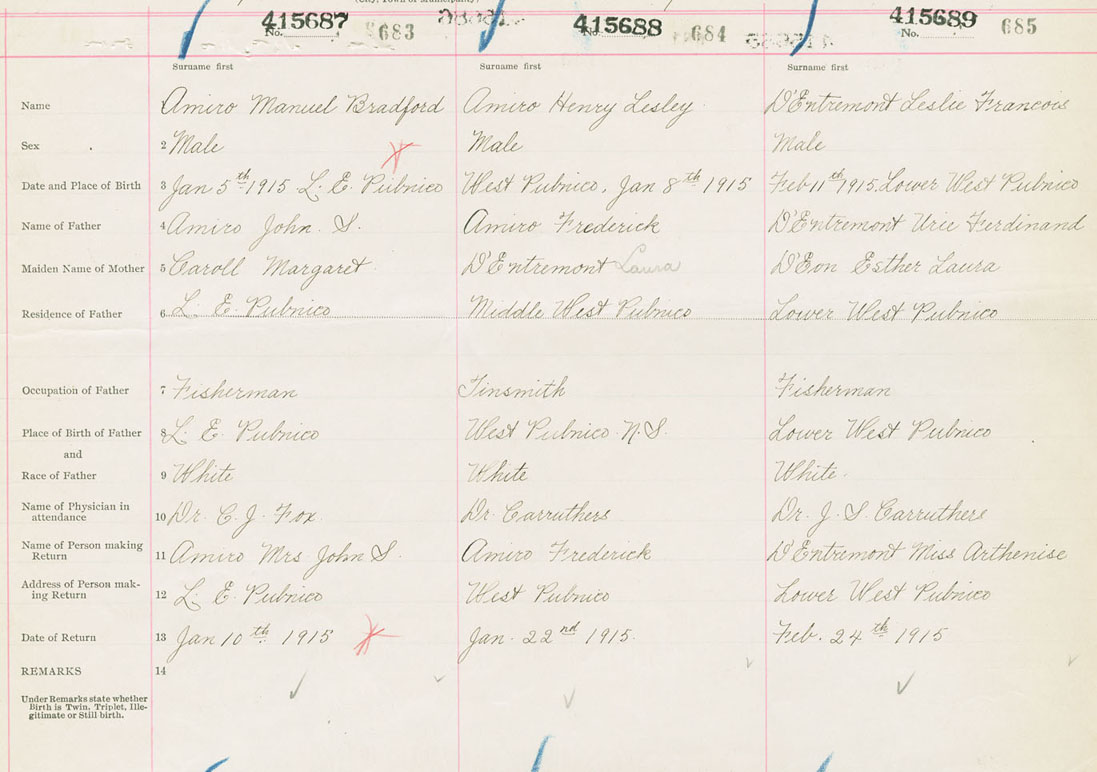 (City, Town or Municipality)
415687 415688 415689
No. 683 No. 684 No. 685
Surname first Surname first Surname first
Name Amiro Manuel Bradford Amiro Henry Lesley D'Entremont Leslie Francois
Sex 2 Male Male Male
Date and Place of Birth 3 Jan 5th 1915 L. E. Pubnico West Pubnico, Jan 8th 1915 Feb 11th 1915. Lower West Pubnico
Name of Father 4 Amiro John. S. Amiro Frederick D'Entremont Urie Ferdinand
Maiden Name of Mother 5 Caroll Margaret D'Entremont Laura D'Eon Esther Laura
Residence of Father 6 L. E. Pubnico Middle West Pubnico Lower West Pubnico
Occupation of Father 7 Fisherman Tinsmith Fisherman
Place of Birth of Father 8 L. E. Pubnico West Pubnico N.S. Lower West Pubnico
and
Race of Father 9 White White White.
Name of Physician in
attendance 10 Dr. C. J. Fox Dr. Carruthers Dr. J. S. Carruthers
Name of Person making
Return 11 Amiro Mrs John S. Amiro Frederick D'Entremont Miss Arthenise
Address of Person mak-
ing Return 12 L. E. Pubnico West Pubnico Lower West Pubnico
Date of Return 13 Jan 10th 1915 Jan. 22nd 1915. Feb. 24th 1915
REMARKS 14
Under Remarks state whether
Birth is Twin, Triplet, Ille-
gitimate or Still birth.